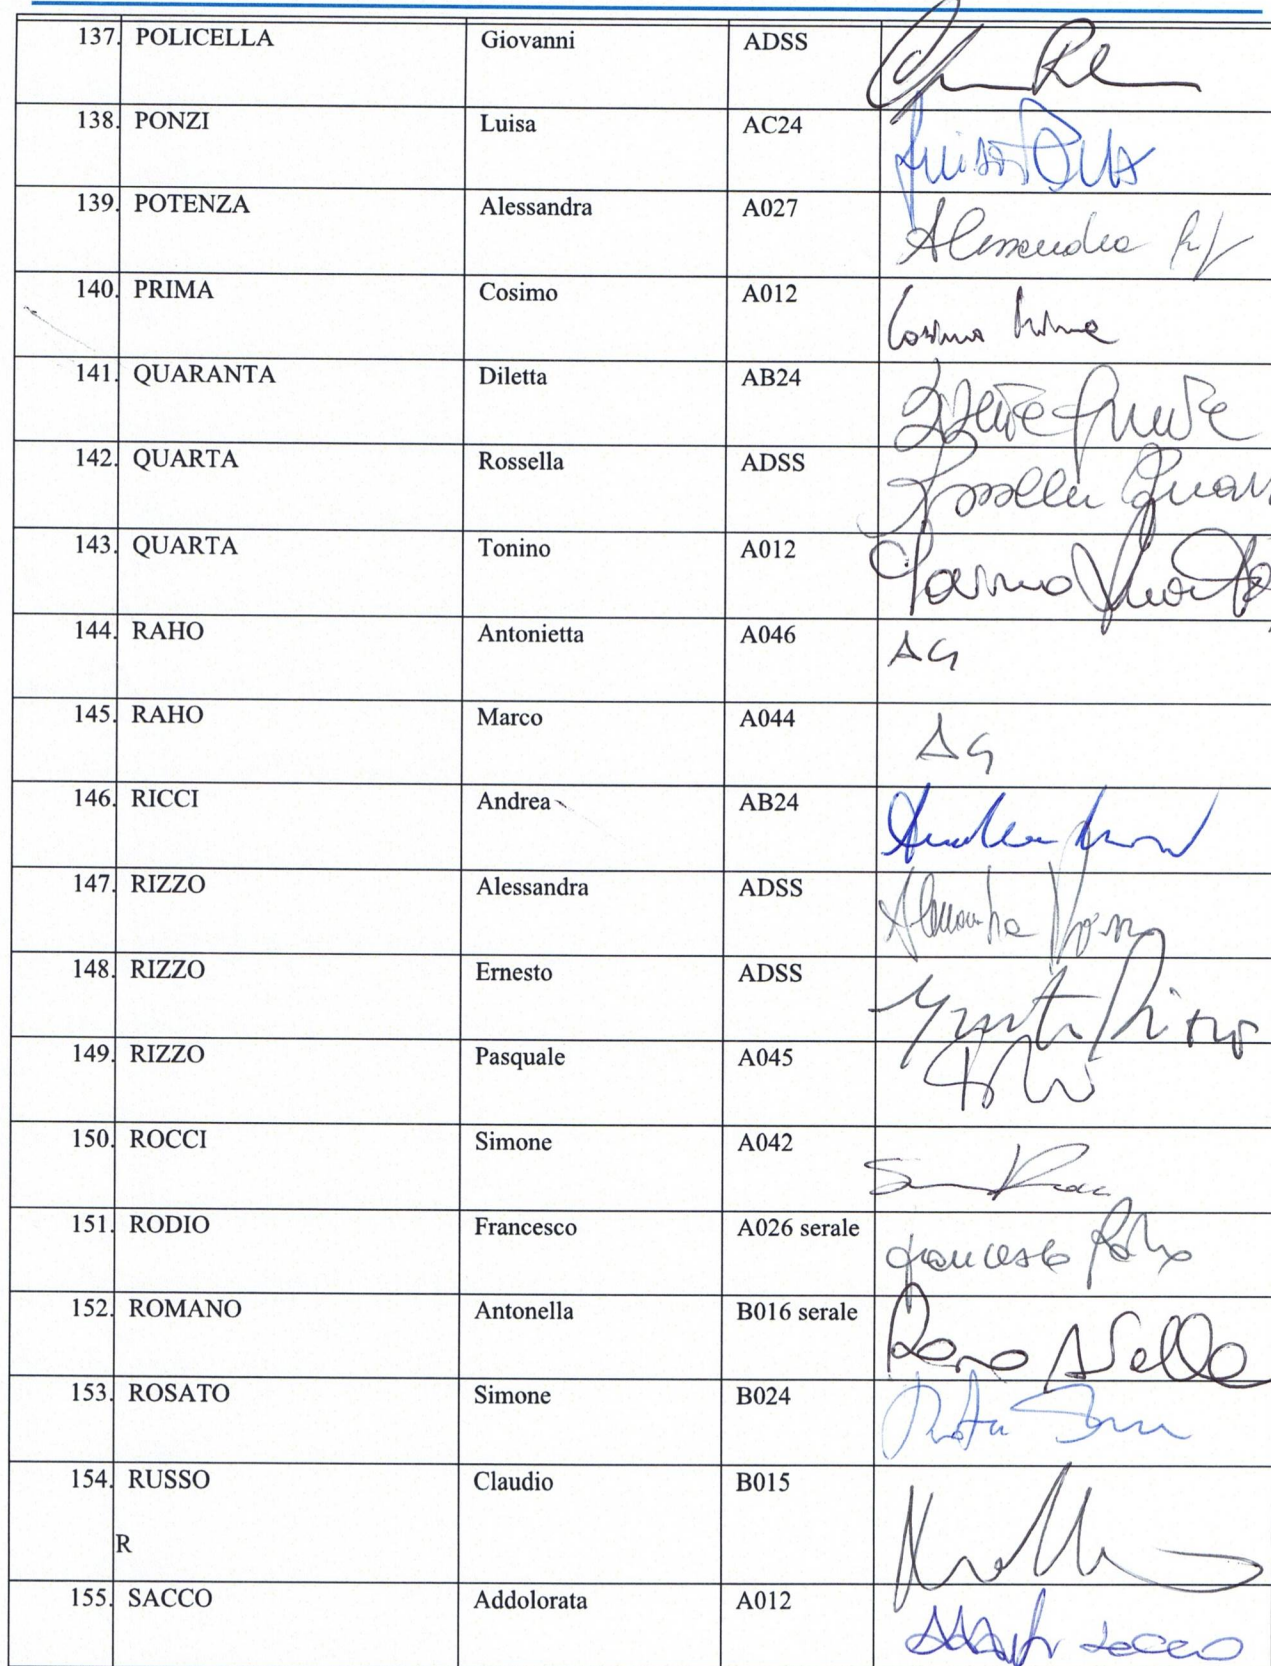 137. POLICELLA Giovanni ADSS
138. PONZI Luisa AC24
139. POTENZA Alessandra A027 Alessandra
140. PRIMA Cosimo A012 Cosimo Prima
141. QUARANTA Diletta AB24
142. QUARTA Rossella ADSS Rossella Quar
143. QUARTA Tonino A012
144. RAHO Antonietta A046 AG
145. RAHO Marco A044 AG
146. RICCI Andrea AB24 Andrea
147. RIZZO Alessandra ADSS Alessandra
148. RIZZO Ernesto ADSS
149. RIZZO Pasquale A045
150. ROCCI Simone A042
151. RODIO Francesco A026 serale Francesco
152. ROMANO Antonella B016 serale
153. ROSATO Simone B024
154. RUSSO Claudio B015
R
155. SACCO Addolorata A012 Sacco